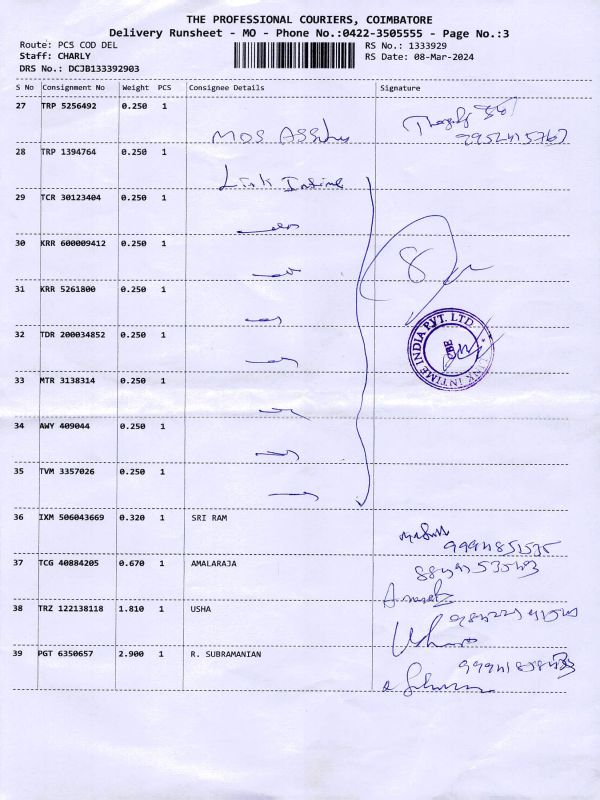 THE PROFESSIONAL COURIERS, COIMBATORE
Delivery Runsheet - MO - Phone No.:0422-3505555 - Page No.:3
Route: PCS COD DEL RS No.: 1333929
Staff: CHARLY RS Date: 08-Mar-2024
DRS No.: DCJB133392903
S No Consignment No Weight PCS Consignee Details Signature
27 TRP 5256492 0.250 1
MOS
28 TRP 1394764 0.250 1
Link Intime
29 TCR 30123404 0.250 1
30 KRR 600009412 0.250 1
8
31 KRR 5261800 0.250 1
LINK INTIME INDIA PVT. LTD.
CBE
32 TDR 200034852 0.250 1
33 MTR 3138314 0.250 1
34 AWY 409044 0.250 1
35 TVM 3357026 0.250 1
36 IXM 506043669 0.320 1 SRI RAM
37 TCG 40884205 0.670 1 AMALARAJA
38 TRZ 122138118 1.810 1 USHA
Usha
39 PGT 6350657 2.900 1 R. SUBRAMANIAN